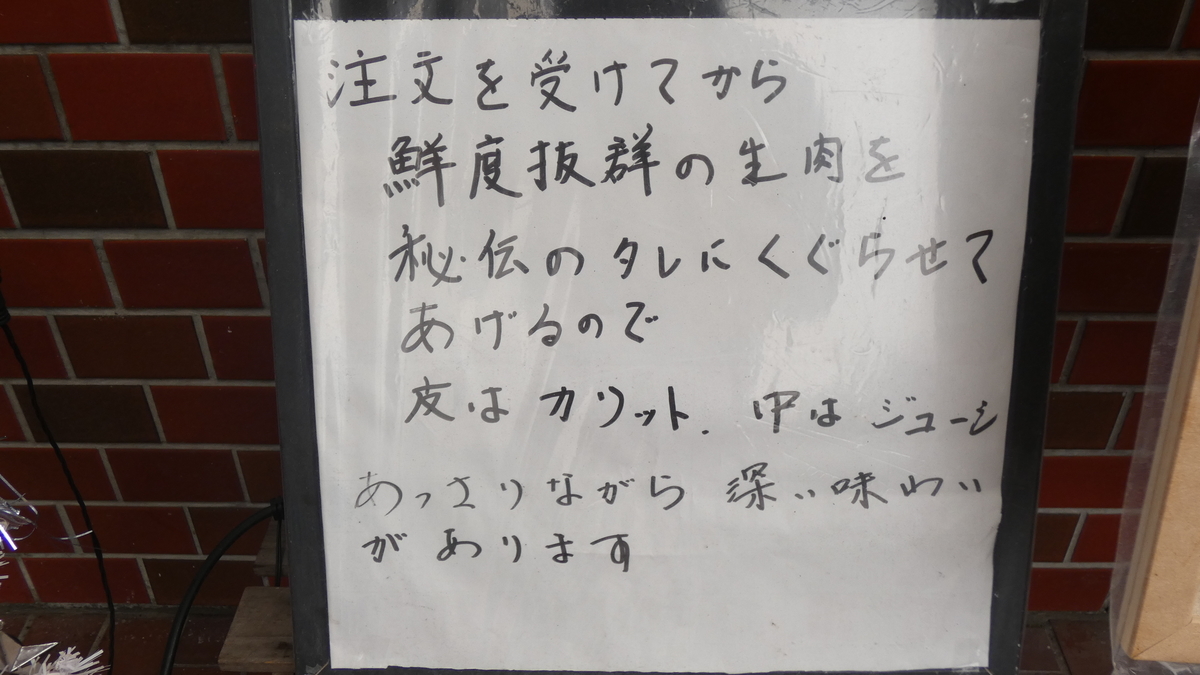 注文を受けてから
鮮度抜群の生肉を
秘伝のタレにくぐらせて
あげるので
皮はカリット. 中はジューシ
あっさりながら 深い味わい
があります